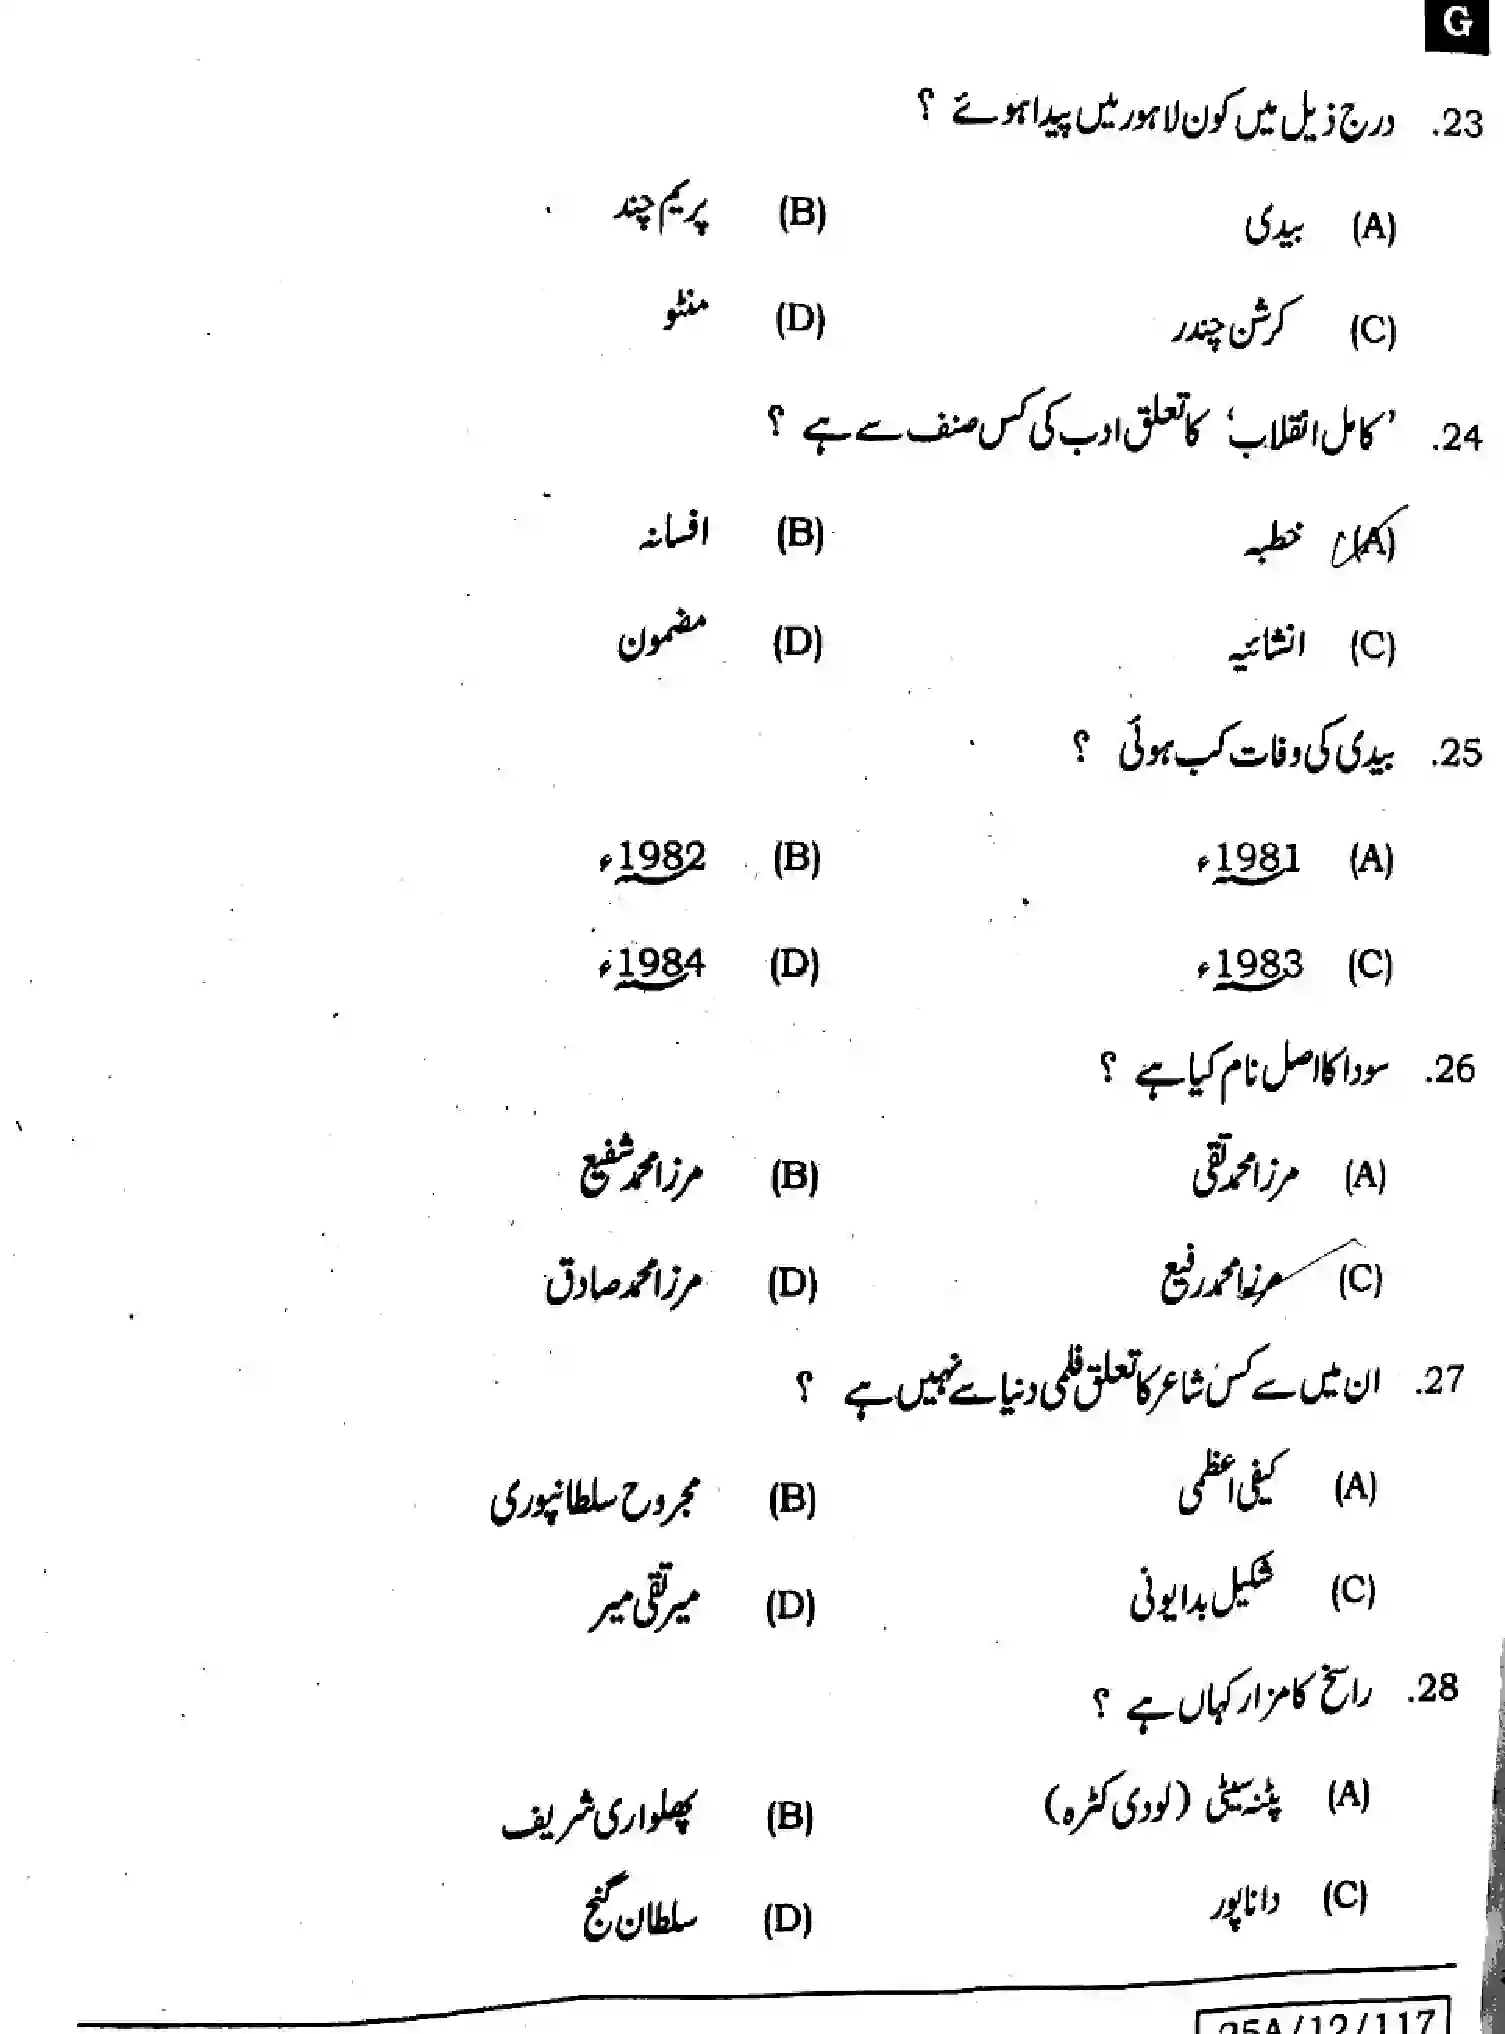 G
23. درج ذیل میں کون لاہور میں پیدا ہوئے ؟
(A) بیدی (B) پریم چند
(C) کرشن چندر (D) منٹو
24. ’کامل انقلاب‘ کا تعلق ادب کی کس صنف سے ہے ؟
(A) خطبہ (B) افسانہ
(C) انشائیہ (D) مضمون
25. بیدی کی وفات کب ہوئی ؟
(A) 1981ء (B) 1982ء
(C) 1983ء (D) 1984ء
26. سودا کا اصل نام کیا ہے ؟
(A) مرزا محمد تقی (B) مرزا محمد شفیع
(C) مرزا محمد رفیع (D) مرزا محمد صادق
27. ان میں سے کس شاعر کا تعلق فلمی دنیا سے نہیں ہے ؟
(A) کیفی اعظمی (B) مجروح سلطانپوری
(C) شکیل بدایونی (D) میر تقی میر
28. راسخ کا مزار کہاں ہے ؟
(A) پٹنہ سیٹی (لودی کٹرہ) (B) پھلواری شریف
(C) داناپور (D) سلطان گنج
25A/12/117